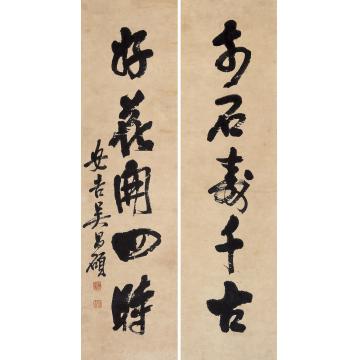 奇石壽千古
好花開四時
安吉吳昌碩